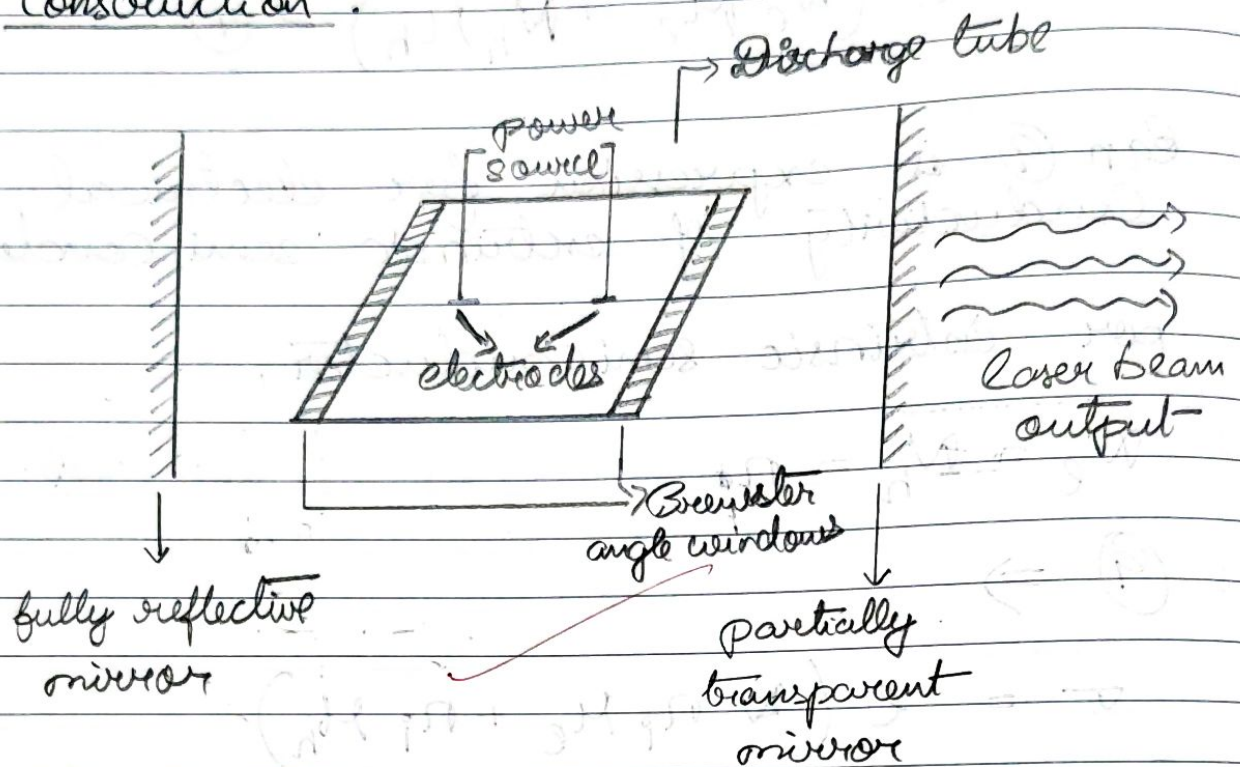 Construction :
Discharge tube
power
source
electrodes
laser beam
output
Brewster
angle windows
fully reflective
mirror
partially
transparent
mirror